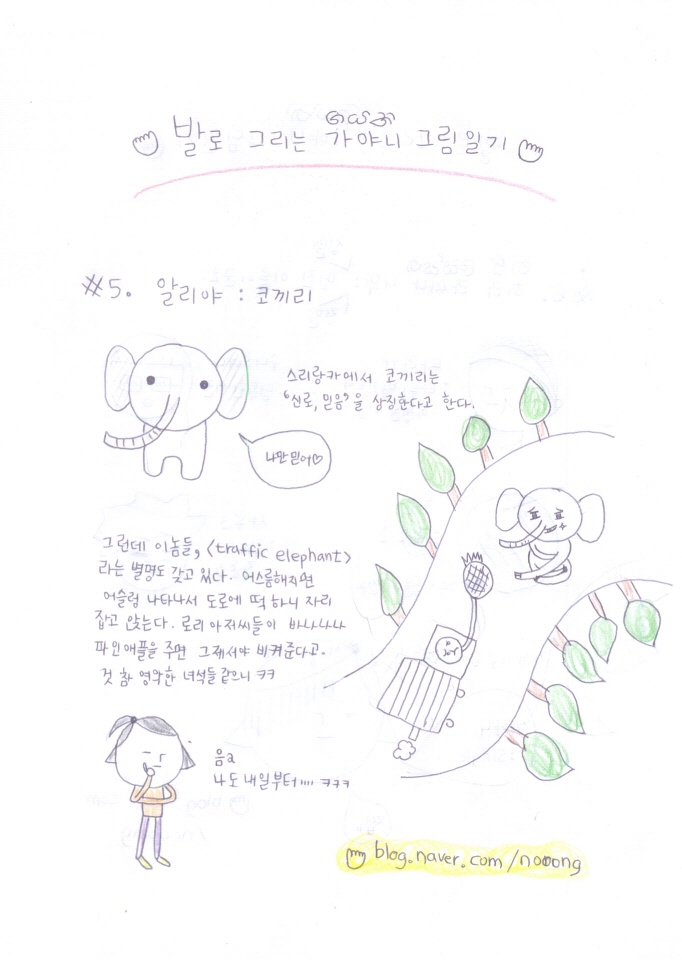 발로 그리는 가야니 그림일기
#5. 알리야 : 코끼리
스리랑카에서 코끼리는
"신뢰, 믿음"을 상징한다고 한다.
나만 믿어♡
그런데 이놈들, <traffic elephant>
라는 별명도 갖고 있다. 어스름해지면
어슬렁 나타나서 도로에 떡 하니 자리
잡고 앉는다. 로리 아저씨들이 바나나나
파인애플을 주면 그제서야 비켜준다고.
것 참 영악한 녀석들 같으니 ㅋㅋ
음a
나도 내일부터.... ㅋㅋㅋ
blog.naver.com/nooong